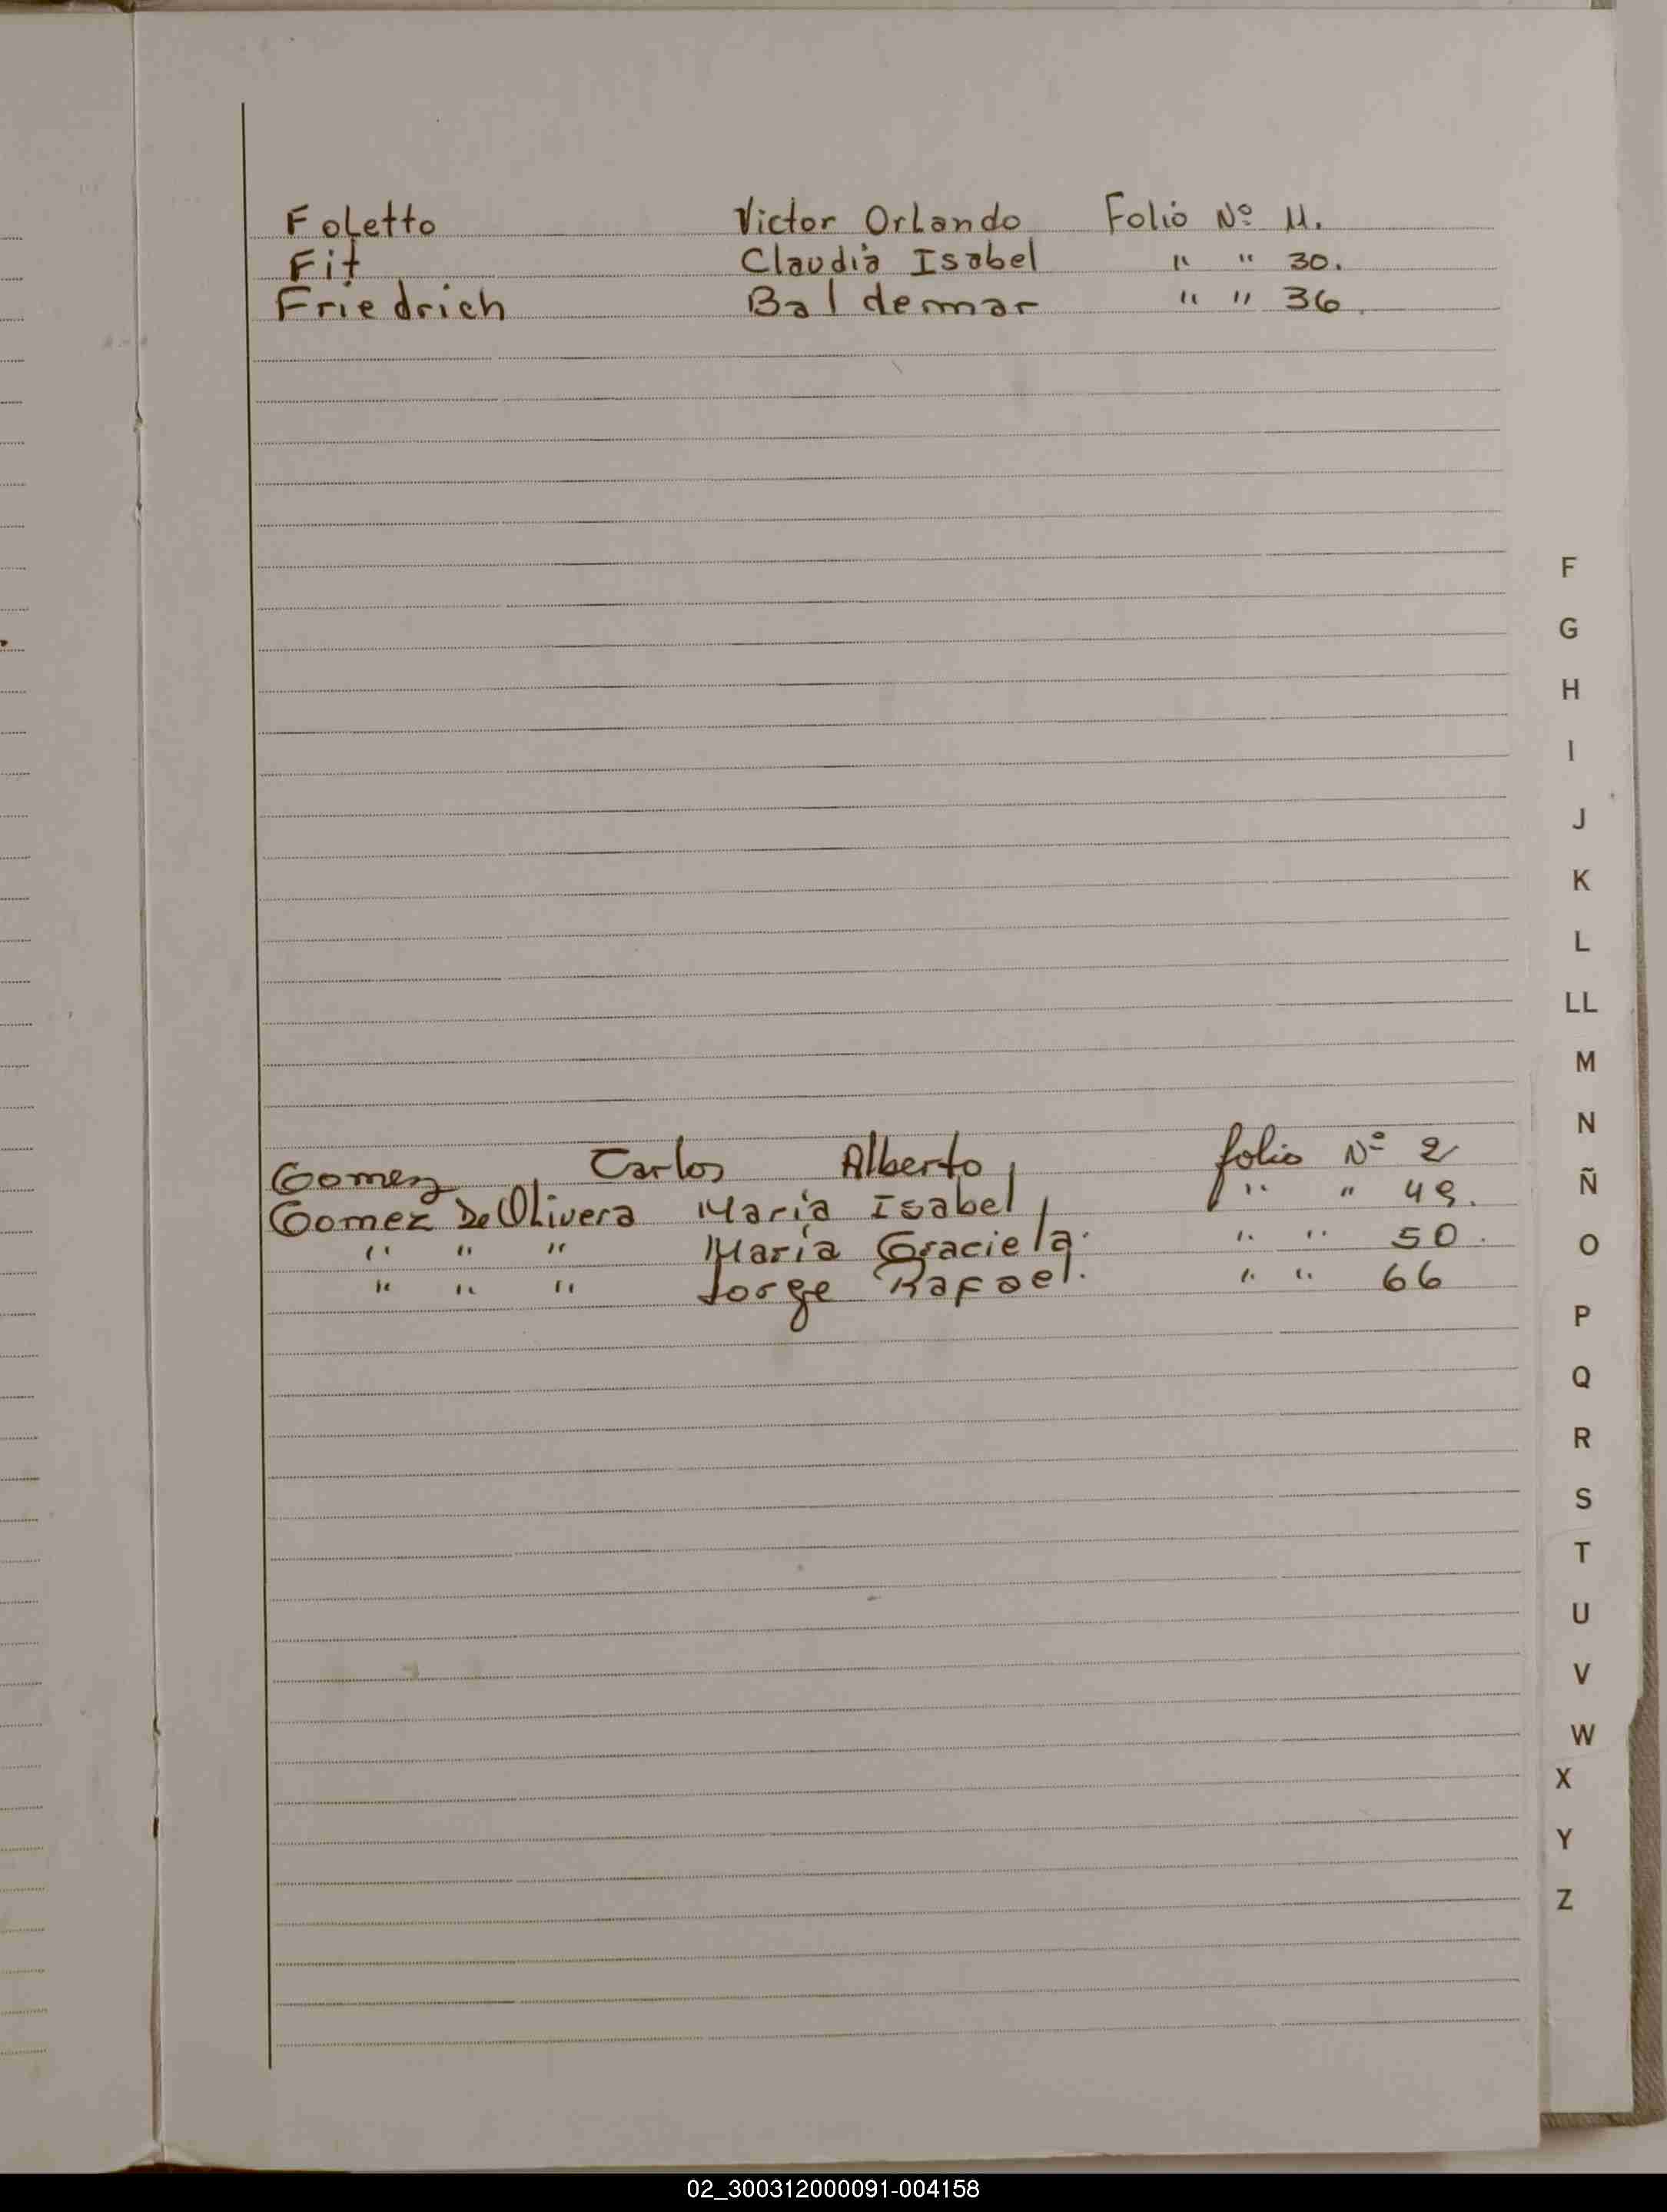 Foletto Victor Orlando Folio Nº 11.
Fit Claudia Isabel " " 30.
Friedrich Baldemar " " 36.
Gomez Carlos Alberto, folio Nº 2
Gomez De Olivera María Isabel, " " 49.
" " " María Graciela. " " 50.
" " " Jorge Rafael. " " 66
F
G
H
I
J
K
L
LL
M
N
Ñ
O
P
Q
R
S
T
U
V
W
X
Y
Z
02_300312000091-004158